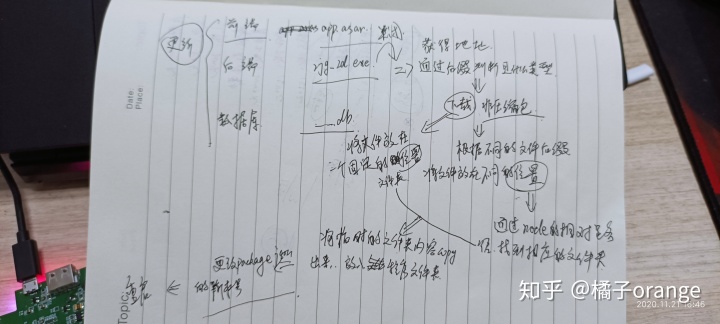 更新
前端 app.asar
后端 .exe
数据库 __.db
获得地址
通过后缀判断是什么类型
下载 压缩包
将文件放在
一个固定的位置
文件夹
根据不同的文件后缀
将文件放在不同的位置
通过node的相对路
径找到相应的文件夹
将临时的文件夹内容copy
出来,放入 文件夹
更改package.json
的版本号
重启
Date:
Place:
Topic:
知乎 @橘子orange
2020.11.21 18:46